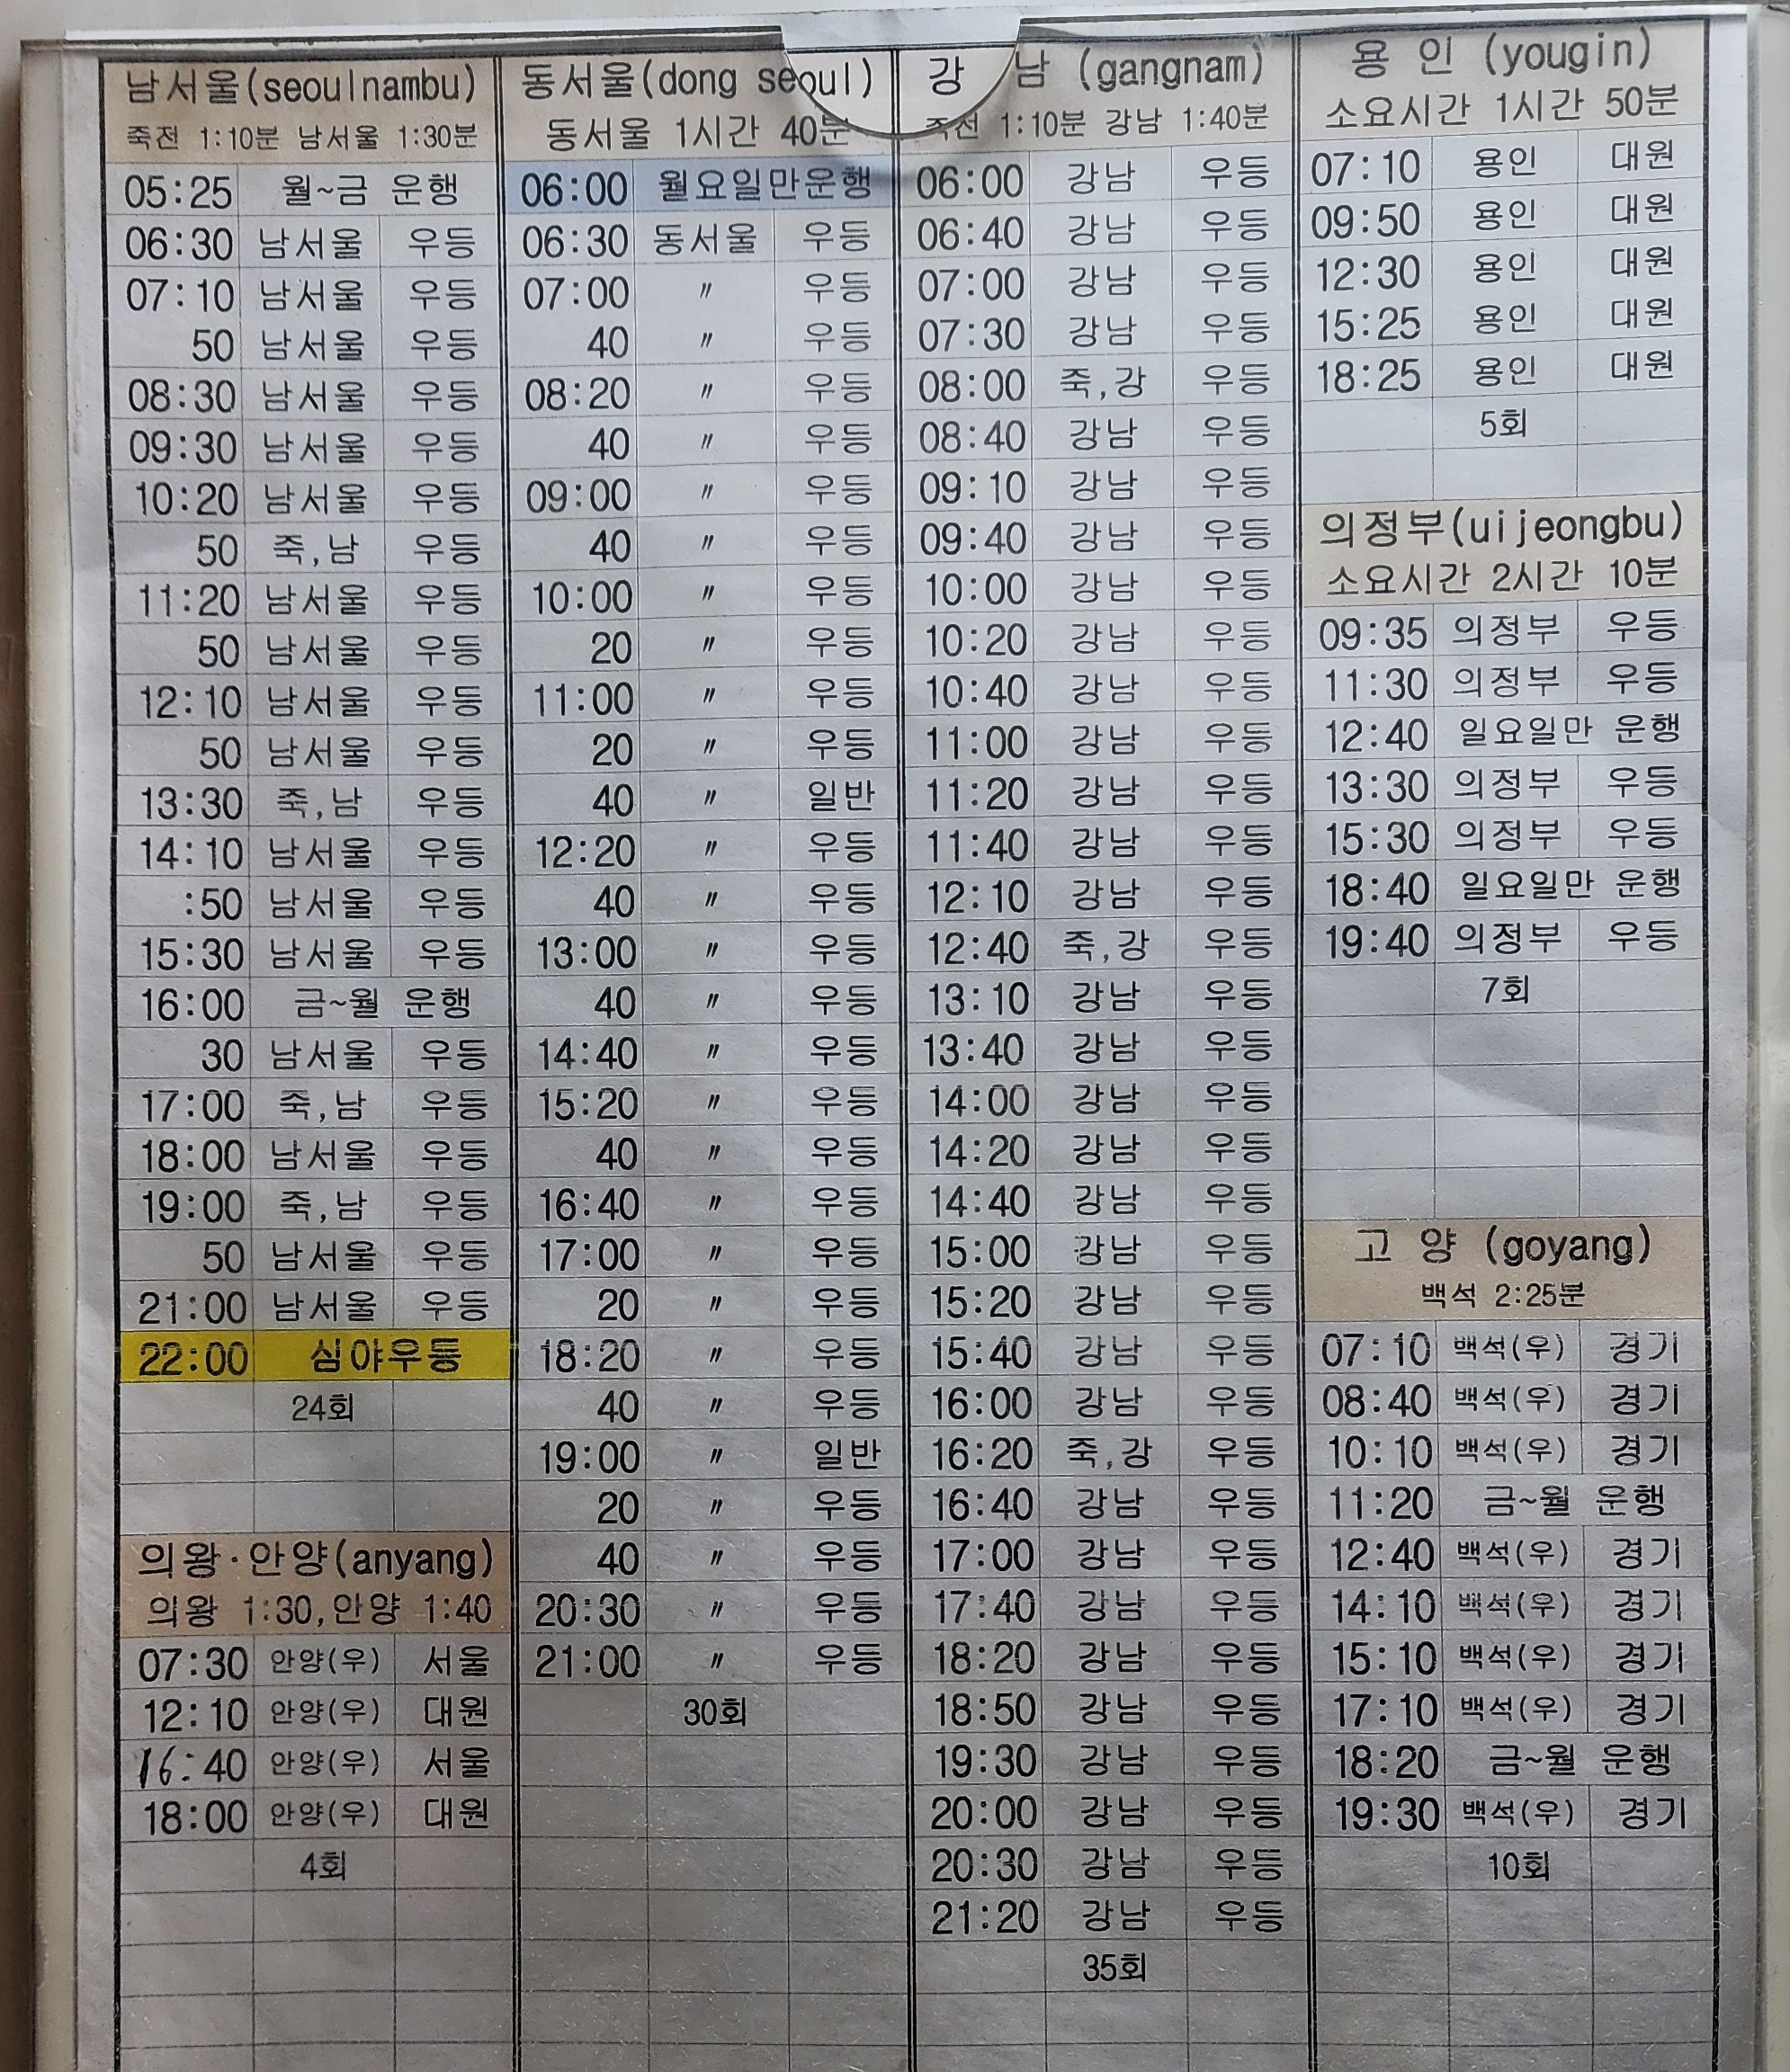 남서울(seoulnambu)
죽전 1:10분 남서울 1:30분
05:25 월~금 운행
06:30 남서울 우등
07:10 남서울 우등
50 남서울 우등
08:30 남서울 우등
09:30 남서울 우등
10:20 남서울 우등
50 죽,남 우등
11:20 남서울 우등
50 남서울 우등
12:10 남서울 우등
50 남서울 우등
13:30 죽,남 우등
14:10 남서울 우등
:50 남서울 우등
15:30 남서울 우등
16:00 금~월 운행
30 남서울 우등
17:00 죽,남 우등
18:00 남서울 우등
19:00 죽,남 우등
50 남서울 우등
21:00 남서울 우등
22:00 심야우등
24회
의왕·안양(anyang)
의왕 1:30,안양 1:40
07:30 안양(우) 서울
12:10 안양(우) 대원
16:40 안양(우) 서울
18:00 안양(우) 대원
4회
동서울(dong seoul)
동서울 1시간 40분
06:00 월요일만운행
06:30 동서울 우등
07:00 〃 우등
40 〃 우등
08:20 〃 우등
40 〃 우등
09:00 〃 우등
40 〃 우등
10:00 〃 우등
20 〃 우등
11:00 〃 우등
20 〃 우등
40 〃 일반
12:20 〃 우등
40 〃 우등
13:00 〃 우등
40 〃 우등
14:40 〃 우등
15:20 〃 우등
40 〃 우등
16:40 〃 우등
17:00 〃 우등
20 〃 우등
18:20 〃 우등
40 〃 우등
19:00 〃 일반
20 〃 우등
40 〃 우등
20:30 〃 우등
21:00 〃 우등
30회
강 남 (gangnam)
죽전 1:10분 강남 1:40분
06:00 강남 우등
06:40 강남 우등
07:00 강남 우등
07:30 강남 우등
08:00 죽,강 우등
08:40 강남 우등
09:10 강남 우등
09:40 강남 우등
10:00 강남 우등
10:20 강남 우등
10:40 강남 우등
11:00 강남 우등
11:20 강남 우등
11:40 강남 우등
12:10 강남 우등
12:40 죽,강 우등
13:10 강남 우등
13:40 강남 우등
14:00 강남 우등
14:20 강남 우등
14:40 강남 우등
15:00 강남 우등
15:20 강남 우등
15:40 강남 우등
16:00 강남 우등
16:20 죽,강 우등
16:40 강남 우등
17:00 강남 우등
17:40 강남 우등
18:20 강남 우등
18:50 강남 우등
19:30 강남 우등
20:00 강남 우등
20:30 강남 우등
21:20 강남 우등
35회
용 인 (yougin)
소요시간 1시간 50분
07:10 용인 대원
09:50 용인 대원
12:30 용인 대원
15:25 용인 대원
18:25 용인 대원
5회
의정부(uijeongbu)
소요시간 2시간 10분
09:35 의정부 우등
11:30 의정부 우등
12:40 일요일만 운행
13:30 의정부 우등
15:30 의정부 우등
18:40 일요일만 운행
19:40 의정부 우등
7회
고 양 (goyang)
백석 2:25분
07:10 백석(우) 경기
08:40 백석(우) 경기
10:10 백석(우) 경기
11:20 금~월 운행
12:40 백석(우) 경기
14:10 백석(우) 경기
15:10 백석(우) 경기
17:10 백석(우) 경기
18:20 금~월 운행
19:30 백석(우) 경기
10회